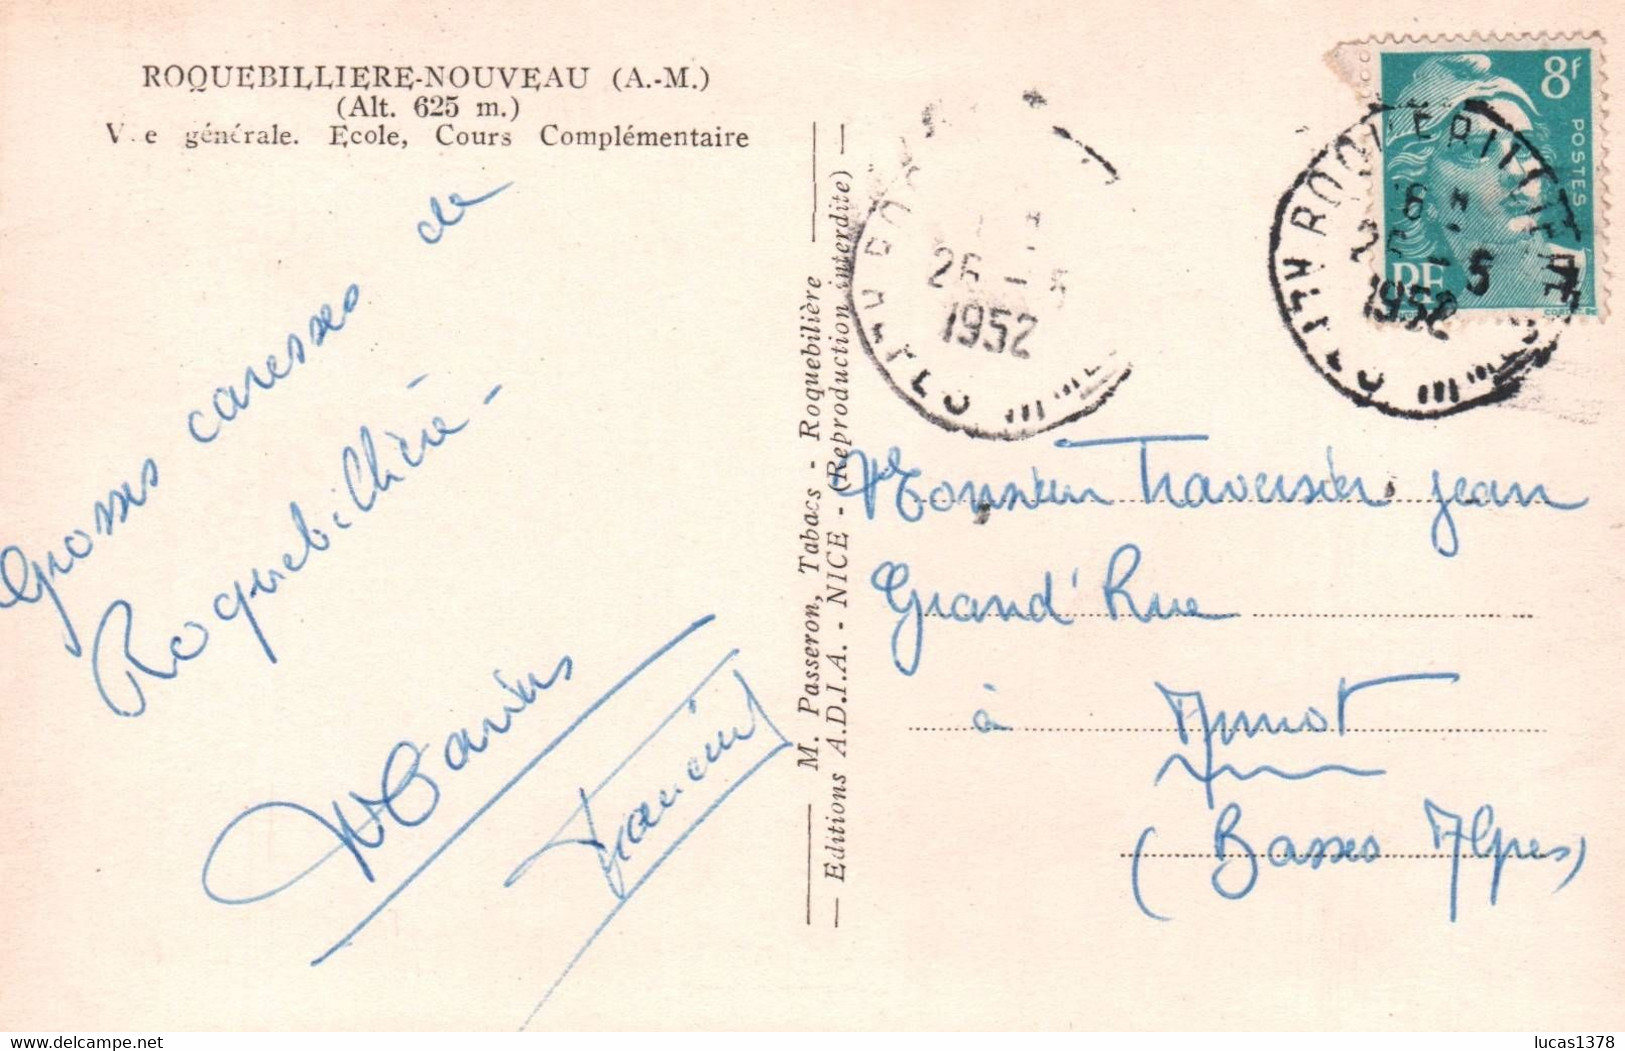 ROQUEBILLIERE-NOUVEAU (A.-M.)
(Alt. 625 m.)
V e générale. Ecole, Cours Complémentaire
Grosses caresses de
Roquebillière -
Francine
M. Passeron, Tabacs - Roquebilière
— Editions A.D.I.A. - NICE - (Reproduction interdite) —
26 - 5
1952
8F
POSTES
RF
ROQUEBILLIERE
26 - 5
1952
ALP. MMES
Monsieur Traversier Jean
Grand' Rue
à Annot
(Basses Alpes)
lucas1378